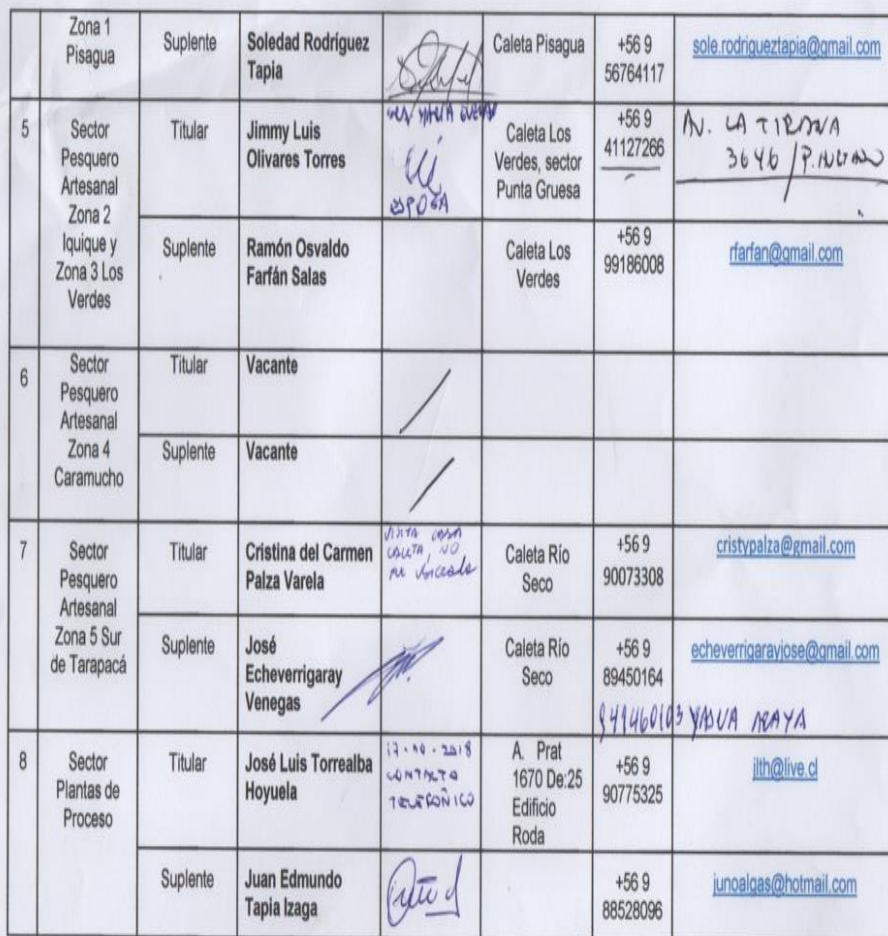 Zona 1
Pisagua
Suplente
Soledad Rodríguez
Tapia
Caleta Pisagua
+56 9
56764117
sole.rodrigueztapia@gmail.com
5
Sector
Pesquero
Artesanal
Zona 2
Iquique y
Zona 3 Los
Verdes
Titular
Jimmy Luis
Olivares Torres
ESPOSA
Caleta Los
Verdes, sector
Punta Gruesa
+56 9
41127266
AV. LA TIRANA
3646
Suplente
Ramón Osvaldo
Farfán Salas
Caleta Los
Verdes
+56 9
99186008
rfarfan@gmail.com
6
Sector
Pesquero
Artesanal
Zona 4
Caramucho
Titular
Vacante
Suplente
Vacante
7
Sector
Pesquero
Artesanal
Zona 5 Sur
de Tarapacá
Titular
Cristina del Carmen
Palza Varela
VISITA CASA
CALETA, NO
Caleta Río
Seco
+56 9
90073308
cristypalza@gmail.com
Suplente
José
Echeverrigaray
Venegas
Caleta Río
Seco
+56 9
89450164
echeverrigarayjose@gmail.com
ARAYA
8
Sector
Plantas de
Proceso
Titular
José Luis Torrealba
Hoyuela
17-10-2018
CONTACTO
TELEFÓNICO
A. Prat
1670 De:25
Edificio
Roda
+56 9
90775325
jlth@live.cl
Suplente
Juan Edmundo
Tapia Izaga
+56 9
88528096
junoalgas@hotmail.com